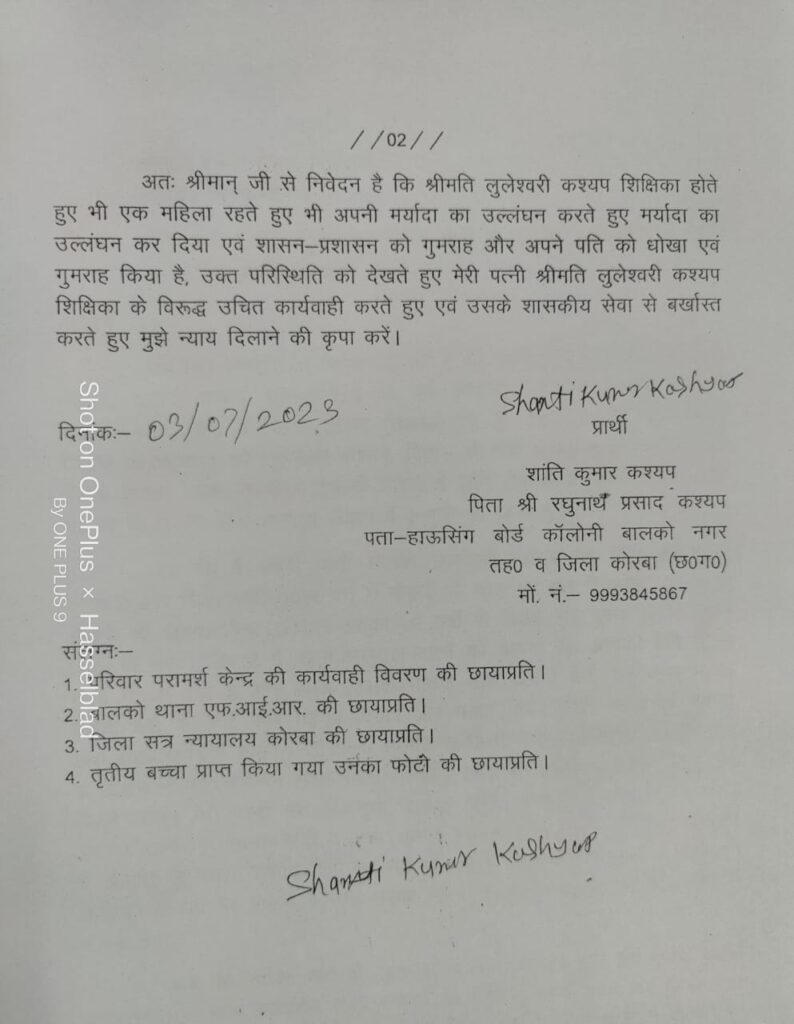 //02//
अतः श्रीमान् जी से निवेदन है कि श्रीमति लुलेश्वरी कश्यप शिक्षिका होते
हुए भी एक महिला रहते हुए भी अपनी मर्यादा का उल्लंघन करते हुए मर्यादा का
उल्लंघन कर दिया एवं शासन–प्रशासन को गुमराह और अपने पति को धोखा एवं
गुमराह किया है, उक्त परिस्थिति को देखते हुए मेरी पत्नी श्रीमति लुलेश्वरी कश्यप
शिक्षिका के विरूद्ध उचित कार्यवाही करते हुए एवं उसके शासकीय सेवा से बर्खास्त
करते हुए मुझे न्याय दिलाने की कृपा करें।
Shanti Kumar Kashyap
प्रार्थी
दिनांकः– 03/07/2023
शांति कुमार कश्यप
पिता श्री रघुनाथ प्रसाद कश्यप
पता–हाऊसिंग बोर्ड कॉलोनी बालको नगर
तह0 व जिला कोरबा (छ0ग0)
मों. नं.– 9993845867
संलग्नः–
1. परिवार परामर्श केन्द्र की कार्यवाही विवरण की छायाप्रति।
2. बालको थाना एफ.आई.आर. की छायाप्रति।
3. जिला सत्र न्यायालय कोरबा की छायाप्रति।
4. तृतीय बच्चा प्राप्त किया गया उनका फोटो की छायाप्रति।
Shanti Kumar Kashyap
Shot on OnePlus × Hasselblad
By ONE PLUS 9